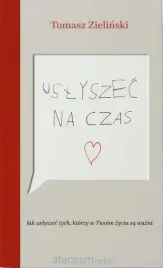 Tomasz Zieliński
USŁYSZEĆ
NA CZAS
Jak usłyszeć tych, którzy w Twoim życiu są ważni